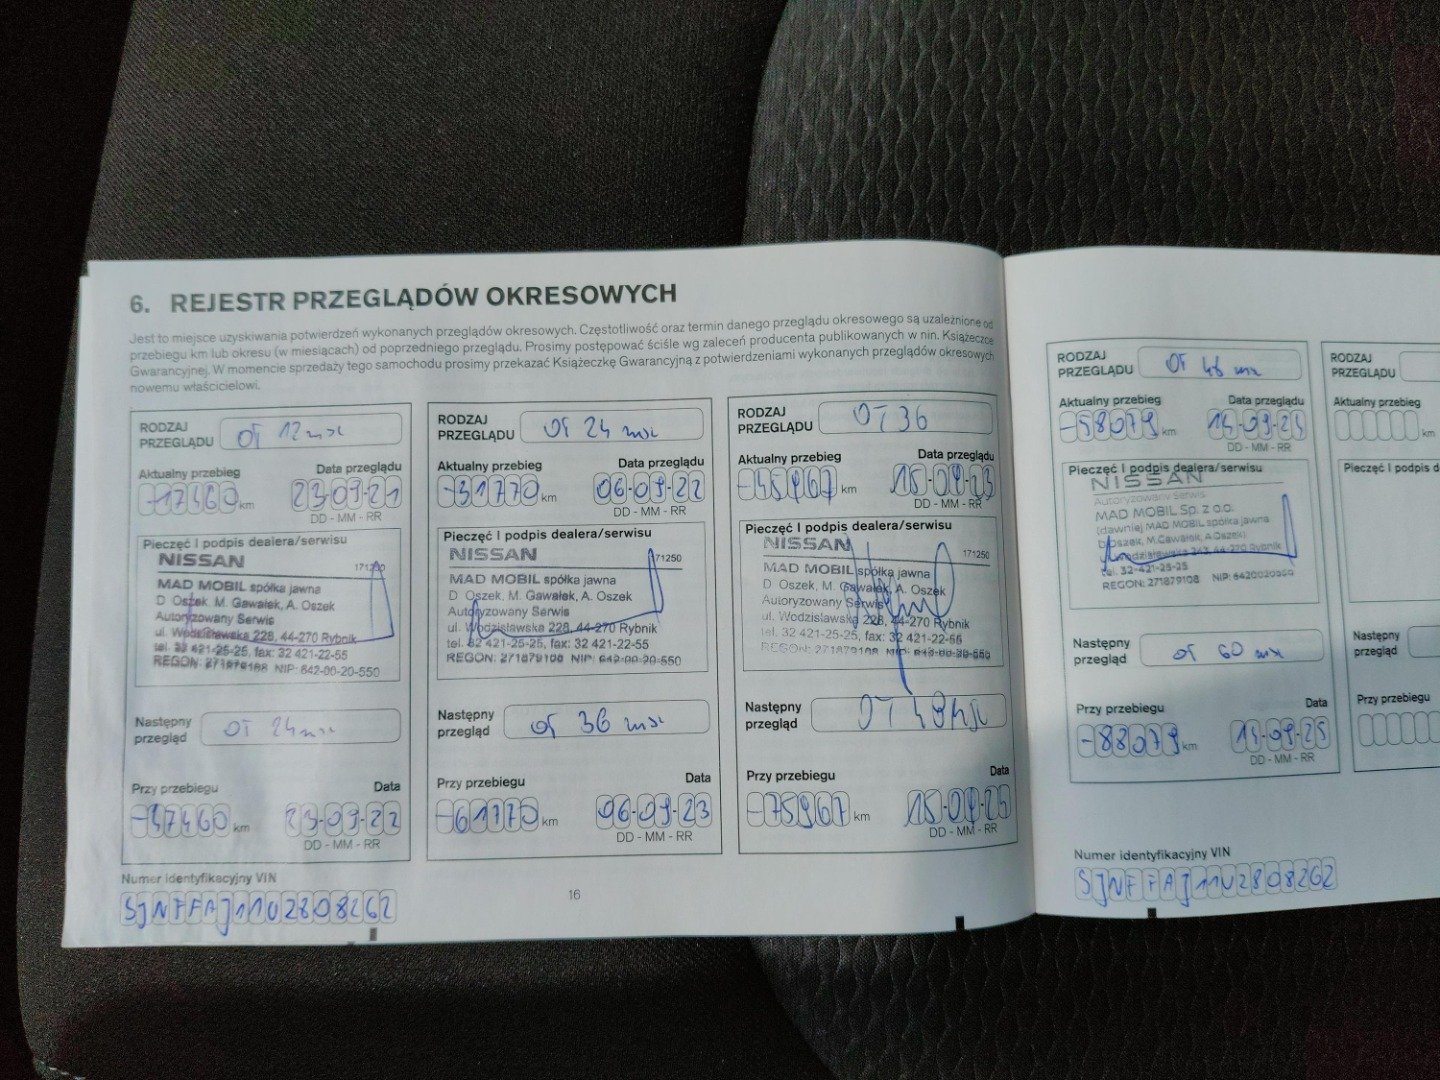 6. REJESTR PRZEGLĄDÓW OKRESOWYCH
Jest to miejsce uzyskiwania potwierdzeń wykonanych przeglądów okresowych. Częstotliwość oraz termin danego przeglądu okresowego są uzależnione od
przebiegu km lub okresu (w miesiącach) od poprzedniego przeglądu. Prosimy postępować ściśle wg zaleceń producenta publikowanych w nin. Książeczce
Gwarancyjnej. W momencie sprzedaży tego samochodu prosimy przekazać Książeczkę Gwarancyjną z potwierdzeniami wykonanych przeglądów okresowych
nowemu właścicielowi.
RODZAJ
PRZEGLĄDU OT 12 msc
Aktualny przebieg Data przeglądu
-17460 km 23-09-21
DD - MM - RR
Pieczęć I podpis dealera/serwisu
NISSAN 171250
MAD MOBIL spółka jawna
D. Oszek, M. Gawałek, A. Oszek
Autoryzowany Serwis
ul. Wodzisławska 228, 44-270 Rybnik
tel. 32 421-25-25, fax: 32 421-22-55
REGON: 271879108 NIP: 642-00-20-550
Następny
przegląd OT 24 msc
Przy przebiegu Data
-47460 km 23-09-22
DD - MM - RR
Numer identyfikacyjny VIN
SJNFFAJ11U2808262
RODZAJ
PRZEGLĄDU OT 24 msc
Aktualny przebieg Data przeglądu
-31770 km 06-09-22
DD - MM - RR
Pieczęć I podpis dealera/serwisu
NISSAN 171250
MAD MOBIL spółka jawna
D. Oszek, M. Gawałek, A. Oszek
Autoryzowany Serwis
ul. Wodzisławska 228, 44-270 Rybnik
tel. 32 421-25-25, fax: 32 421-22-55
REGON: 271879108 NIP: 642-00-20-550
Następny
przegląd OT 36 msc
Przy przebiegu Data
-61770 km 06-09-23
DD - MM - RR
16
RODZAJ
PRZEGLĄDU OT 36
Aktualny przebieg Data przeglądu
-45967 km 15-09-23
DD - MM - RR
Pieczęć I podpis dealera/serwisu
NISSAN 171250
MAD MOBIL spółka jawna
D. Oszek, M. Gawałek, A. Oszek
Autoryzowany Serwis
ul. Wodzisławska 228, 44-270 Rybnik
tel. 32 421-25-25, fax: 32 421-22-55
REGON: 271879108 NIP: 642-00-20-550
Następny
przegląd OT 48 msc
Przy przebiegu Data
-75967 km 15-09-24
DD - MM - RR
RODZAJ
PRZEGLĄDU OT 48 msc
Aktualny przebieg Data przeglądu
-58079 km 14-09-24
DD - MM - RR
Pieczęć I podpis dealera/serwisu
NISSAN
Autoryzowany Serwis
MAD MOBIL Sp. z o.o.
(dawniej MAD MOBIL spółka jawna
D.Oszek, M.Gawałek, A.Oszek)
44-270 Rybnik
tel. 32-421-25-25
REGON: 271879108 NIP: 6420020550
Następny
przegląd OT 60 msc
Przy przebiegu Data
-88079 km 14-09-25
DD - MM - RR
Numer identyfikacyjny VIN
SJNFFAJ11U2808262
RODZAJ
PRZEGLĄDU
Aktualny przebieg
km
Pieczęć I podpis d
Następny
przegląd
Przy przebiegu